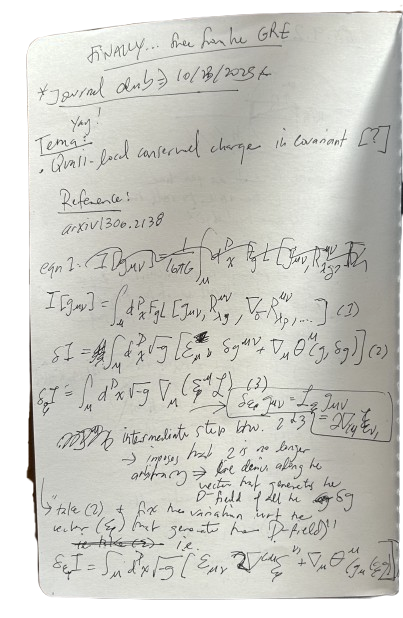 FINALLY... free from the GRE
* Journal club ⇒ 10/23/2025
Yay!
Tema:
• Quasi-local conserved charge in covariant [?]
Reference:
arxiv1306.2138
eqn 1.
I[gμν] = ∫_M d^D x √-g L [gμν, R, ∇R, ...] (1)
δI = ∫_M d^D x √-g [ℰμν δg^μν + ∇μ Θ^μ(g, δg)] (2)
δ_ξ I = ∫_M d^D x √-g ∇μ (ξ^μ L) (3)
δ_ξ gμν = L_ξ gμν
= 2∇(μ ξν)
intermediate step btw. 2 → 3
→ imposes that 2 is no longer
arbitrary ⇒ along the
vector that generates the
D-field of all the δg
→ "take (2) + fix the variation wrt the
vector (ξ) that generates the D-field"
i.e.
δ_ξ I = ∫_M d^D x √-g [ℰμν 2∇^(μ ξ^ν) + ∇μ Θ^μ (g,